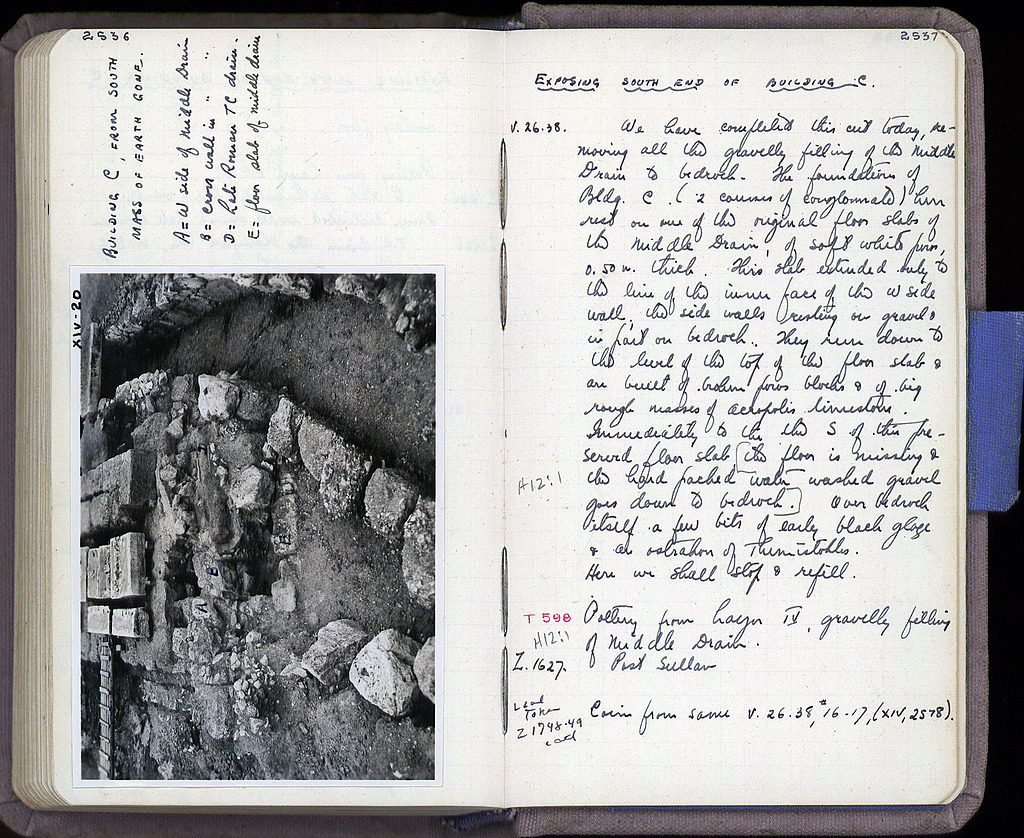 2536
BUILDING C, FROM SOUTH
MASS OF EARTH GONE.
A = W side of Middle Drain
B = Cross wall in " "
D = Late Roman TC drain.
E = floor slab of middle drain
XIV-20
A
B
E
2537
EXPOSING SOUTH END OF BUILDING C.
V.26.38. We have completed this cut today, re-
moving all the gravelly filling of the Middle
Drain to bedrock. The foundations of
Bldg. C. (2 courses of conglomerate) here
rest on one of the original floor slabs of
the Middle Drain, of soft white poros,
0.50 m. thick. This slab extended only to
the line of the inner face of the W side
wall, the side walls resting on gravel &
in part on bedrock. They run down to
the level of the top of the floor slab &
are built of broken poros blocks & of big
rough masses of acropolis limestone.
Immediately to the S of this pre-
served floor slab [the floor is missing &
H12:1 the hard packed water washed gravel
goes down to bedrock.] Over bedrock
itself a few bits of early black glaze
& an ostrakon of Themistokles.
Here we shall stop & refill.
T 598 Pottery from Layer IV, gravelly filling
H12:1 of Middle Drain.
Z.1627. Post Sullan
Lead
Token
Z1748-49
lead
Coins from same V.26.38, #16-17, (XIV, 2578).